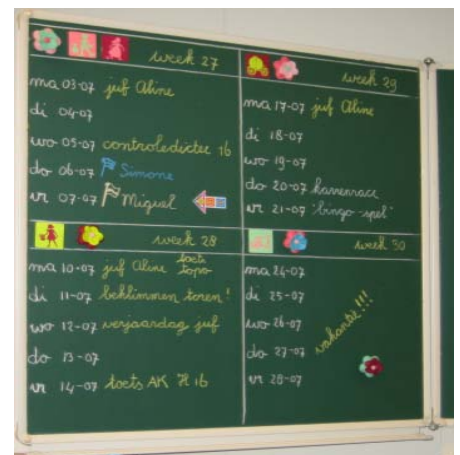 week 27
ma 03-07 juf Aline
di 04-07
wo 05-07 controledictee 16
do 06-07 Simone
vr 07-07 Miguel
week 28
ma 10-07 juf Aline toets topo
di 11-07 beklimmen toren!
wo 12-07 verjaardag juf
do 13-07
vr 14-07 toets AK H 16
week 29
ma 17-07 juf Aline
di 18-07
wo 19-07
do 20-07 karrenrace
vr 21-07 "bingo-spel"
week 30
ma 24-07
di 25-07
wo 26-07
do 27-07
vr 28-07
vakantie!!!